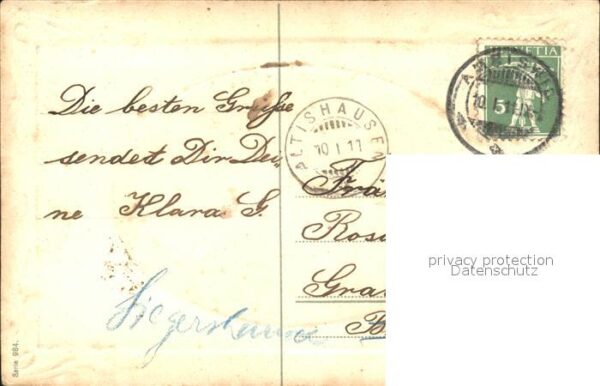 Die besten Grüsse
sendet Dir Dei
ne Klara G.
HELVETIA
5
ALTISHAUSEN
10 I 11
Frä
Rosa
Gra
B
privacy protection
Datenschutz
Serie 984.